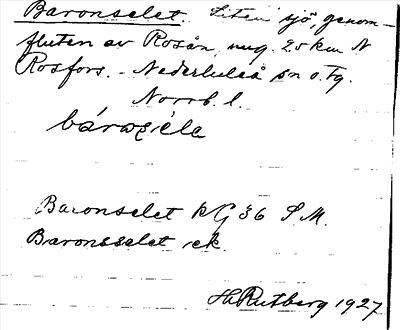 Baronselet. Liten sjö, genom-
fluten av Rosån, ung. 2,5 km N
Rosfors. - Nederluleå sn o. tg.
Norrb. l.
Baronselet kG 36 S.M.
Baronsselet ek.
H. Rutberg 1927